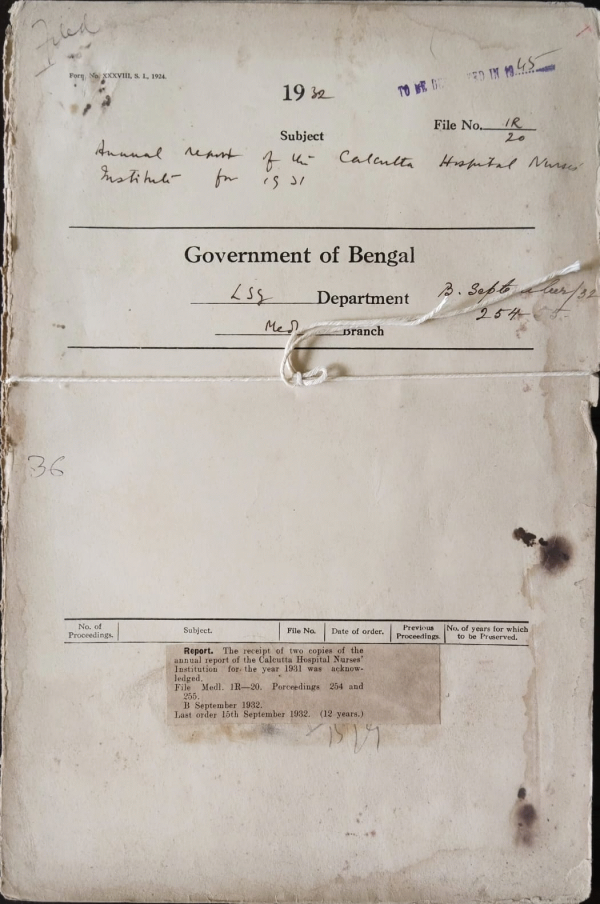 Filed
Form No. XXXVIII, S. I., 1924.
1932
TO BE DESTROYED IN 1945
File No. 1R
20
Subject
Annual report of the Calcutta Hospital Nurses
Institute for 1931
Government of Bengal
LSG Department
B. September/32
254
Medl Branch
36
No. of Proceedings. Subject. File No. Date of order. Previous Proceedings. No. of years for which to be Preserved.
Report. The receipt of two copies of the
annual report of the Calcutta Hospital Nurses'
Institution for the year 1931 was acknow-
ledged.
File Medl. 1R—20. Porceedings 254 and
255.
B September 1932.
Last order 15th September 1932. (12 years.)